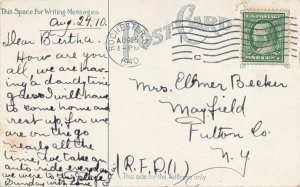 This Space for Writing Messages
Aug. 24. 10.
Dear Bertha:
How are you
all, we are hav-
ing a dandy time
guess I will have
to come home and
rest up, for we
are on the go
nearly all the
time, we take an
auto ride everyday
we were to this place
Sunday with love
POST CARD
ROCHESTER
AUG 25
1910
C
Mrs. Elmer Becker
Mayfield
Fulton Co.
N.Y.
(R.F.D. 1)
This side for the Address only